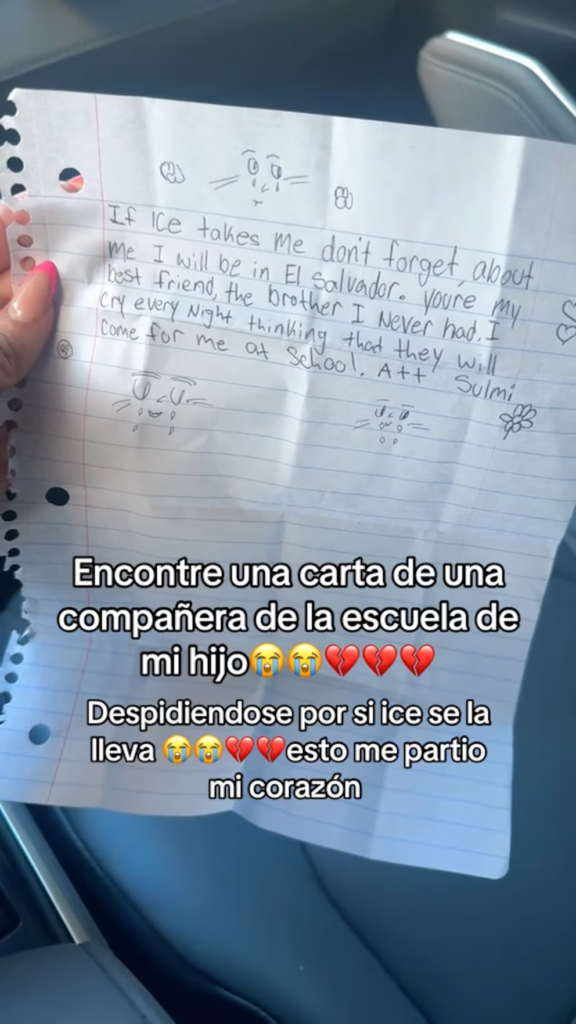 If Ice takes me don't forget about
me I will be in El Salvador. youre my
best friend, the brother I Never had. I
Cry every Night thinking that they will
Come for me at School. Att Sulmi
Encontre una carta de una
compañera de la escuela de
mi hijo😭😭💔💔💔
Despidiendose por si ice se la
lleva 😭😭💔💔esto me partio
mi corazón